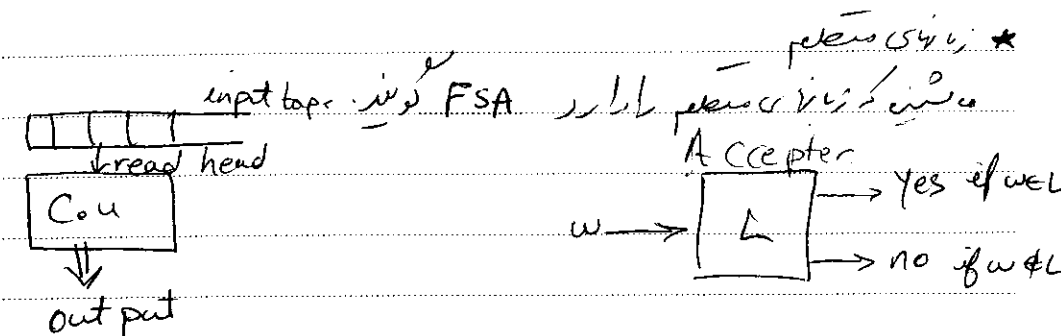 ★ زبانهای منظم
ماشینی که زبانهای منظم را دارد FSA گویند.
input tape
read head
C.u
output
Accepter
w → L
→ Yes if w∈L
→ no if w∉L